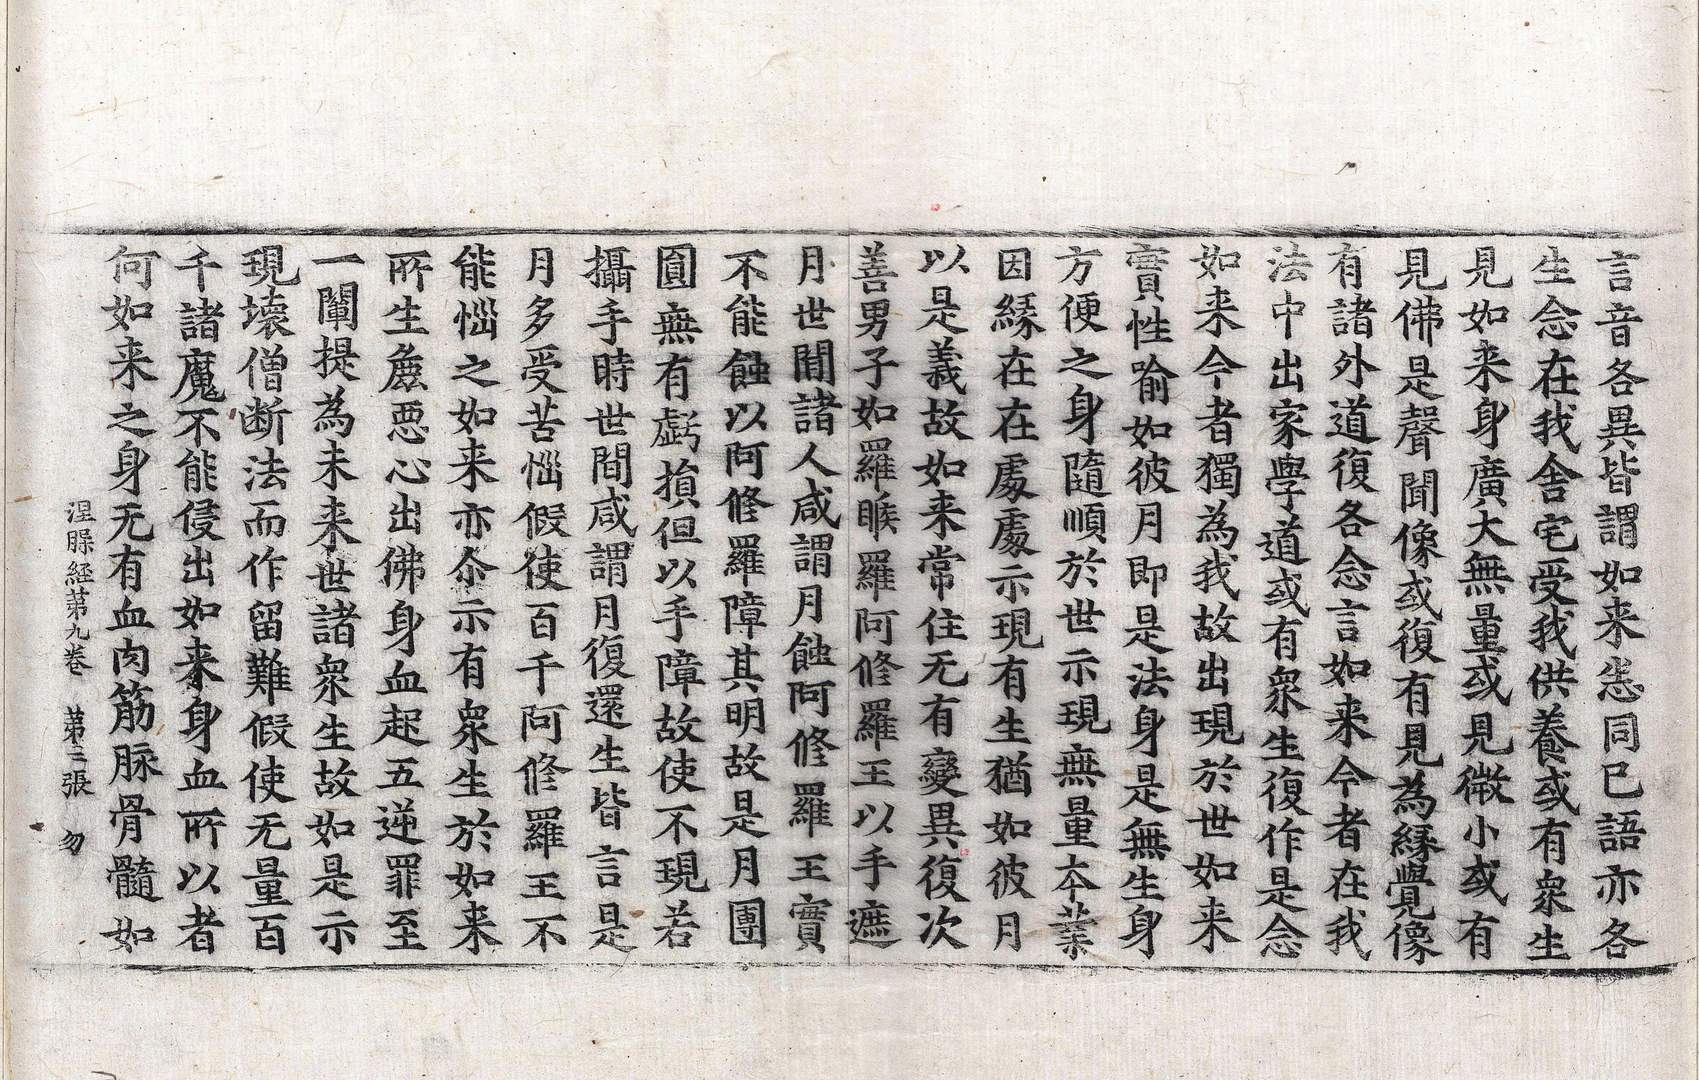 言音各異皆謂如来悉同已語亦各
生念在我舍宅受我供養或有衆生
見如来身廣大無量或見微小或有
見佛是聲聞像或復有見為緣覺像
有諸外道復各念言如来今者在我
法中出家學道或有衆生復作是念
如来今者獨為我故出現於世如来
實性喻如彼月即是法身是無生身
方便之身隨順於世示現無量本業
因緣在在處處示現有生猶如彼月
以是義故如来常住无有變異復次
善男子如羅睺羅阿修羅王以手遮
月世閒諸人咸謂月蝕阿修羅王實
不能蝕以阿修羅障其明故是月團
圓無有虧損但以手障故使不現若
攝手時世閒咸謂月復還生皆言是
月多受苦惱假使百千阿修羅王不
能惱之如来亦尒示有衆生於如来
所生麁惡心出佛身血起五逆罪至
一闡提為未来世諸衆生故如是示
現壞僧断法而作留難假使无量百
千諸魔不能侵出如来身血所以者
何如来之身无有血肉筋脉骨髓如
涅脲経第九卷　第三張　勿